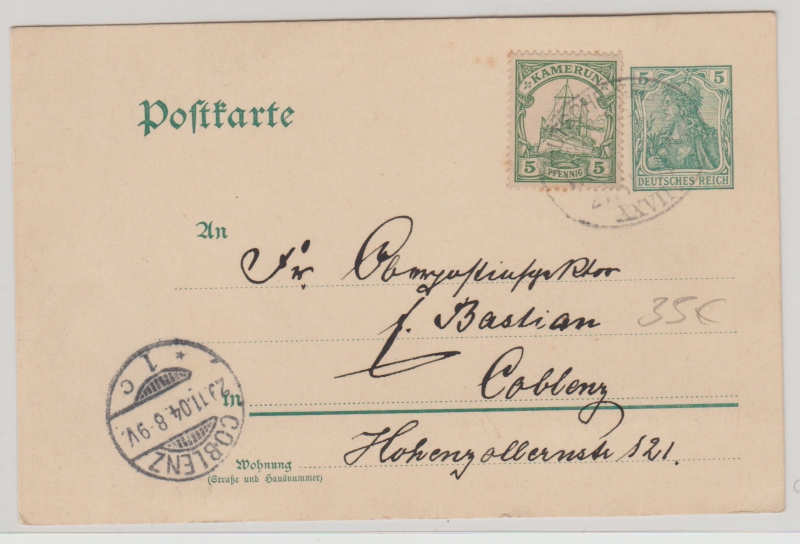 Postkarte
KAMERUN
5 5
PFENNIG
5 5
DEUTSCHES REICH
XXVIII
An
Fr. Oberpostinspektor
Bastian
35€
Coblenz
In
Hohenzollernstr 121.
Wohnung
(Straße und Hausnummer)
COBLENZ
11.04. 8-9V.
* 1 c